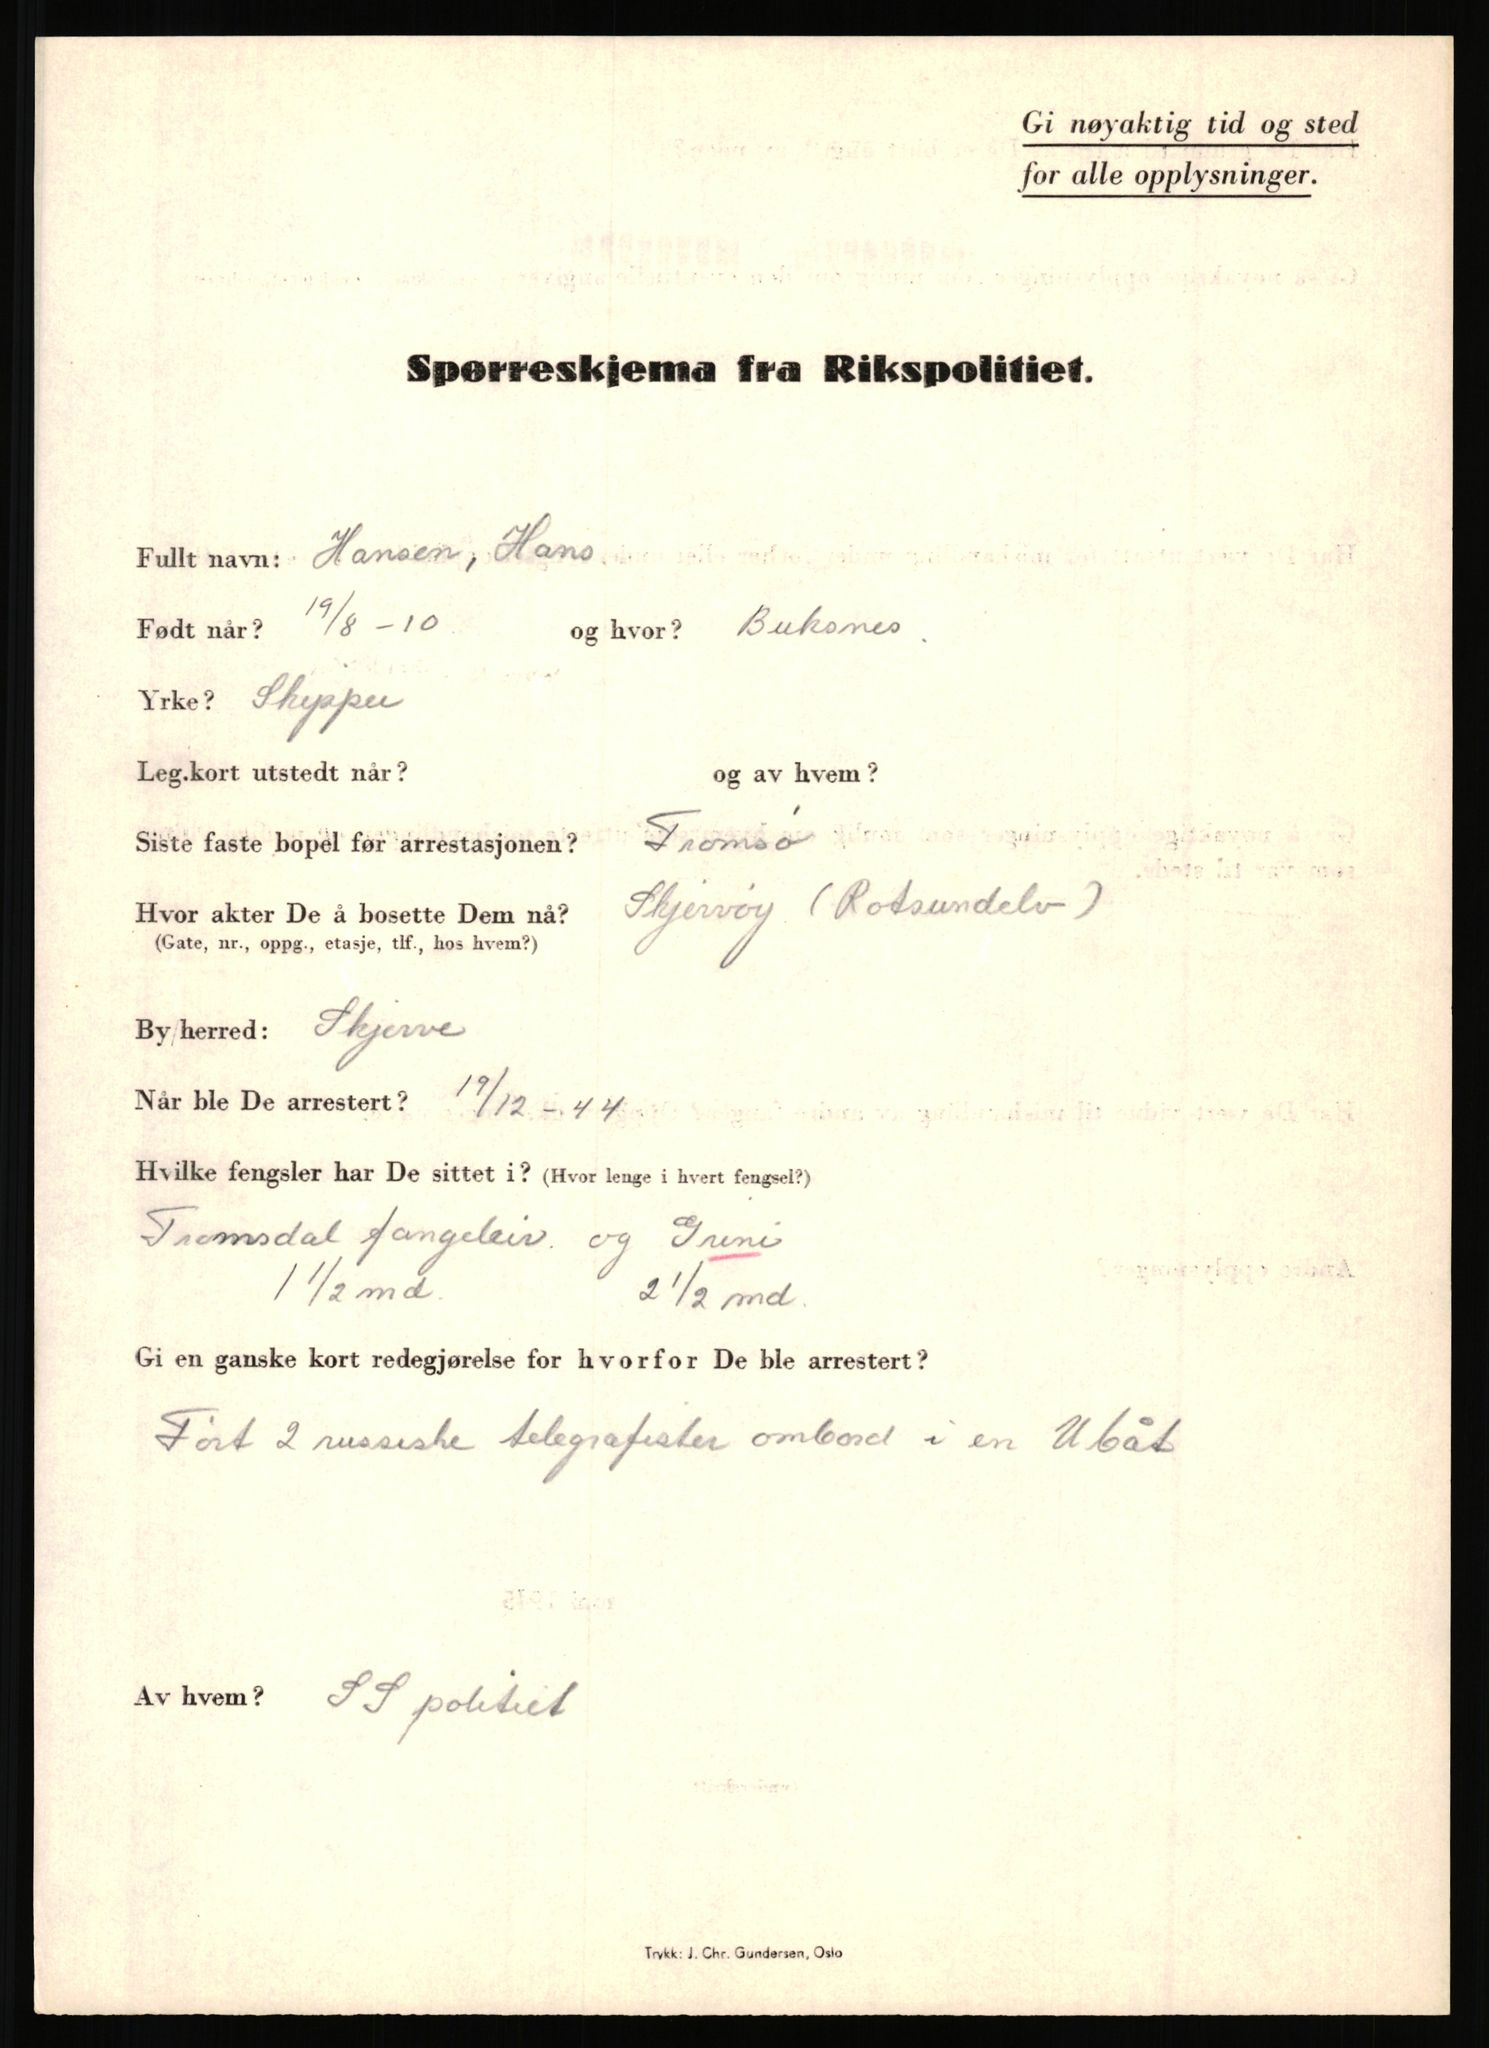 Gi nøyaktig tid og sted
for alle opplysninger.
Spørreskjema fra Rikspolitiet.
Fullt navn: Hansen, Hans
Født når? 19/8 - 10 og hvor? Buksnes.
Yrke? Skipper
Leg.kort utstedt når? og av hvem?
Siste faste bopel før arrestasjonen? Tromsó
Hvor akter De å bosette Dem nå? Skjervóy (Rotsundelv)
(Gate, nr., oppg., etasje, tlf., hos hvem?)
By/herred: Skjerve
Når ble De arrestert? 19/12 - 44
Hvilke fengsler har De sittet i? (Hvor lenge i hvert fengsel?)
Tromsdal fangeleir. og Grini
1 1/2 md. 2 1/2 md.
Gi en ganske kort redegjørelse for hvorfor De ble arrestert?
Fórt 2 russiske telegrafister ombord i en Ubåt
Av hvem? SS politiet
Trykk: J. Chr. Gundersen, Oslo